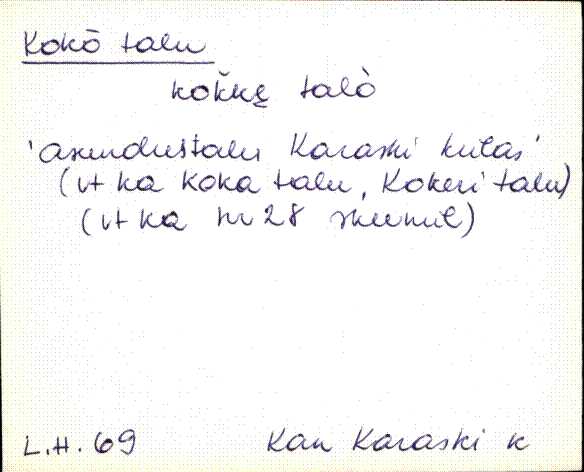 Kokõ talu
kok̆kę talò
'asundustalu Karaski külas'
(vt ka Koka talu, Kokeri talu)
(vt ka nr 28 skeemil)
L.H. 69 Kan Karaski k